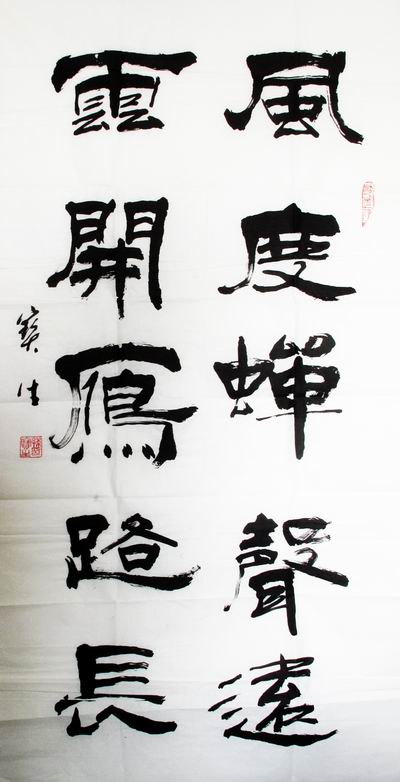 風度蟬聲遠
雲開鴈路長
寶生